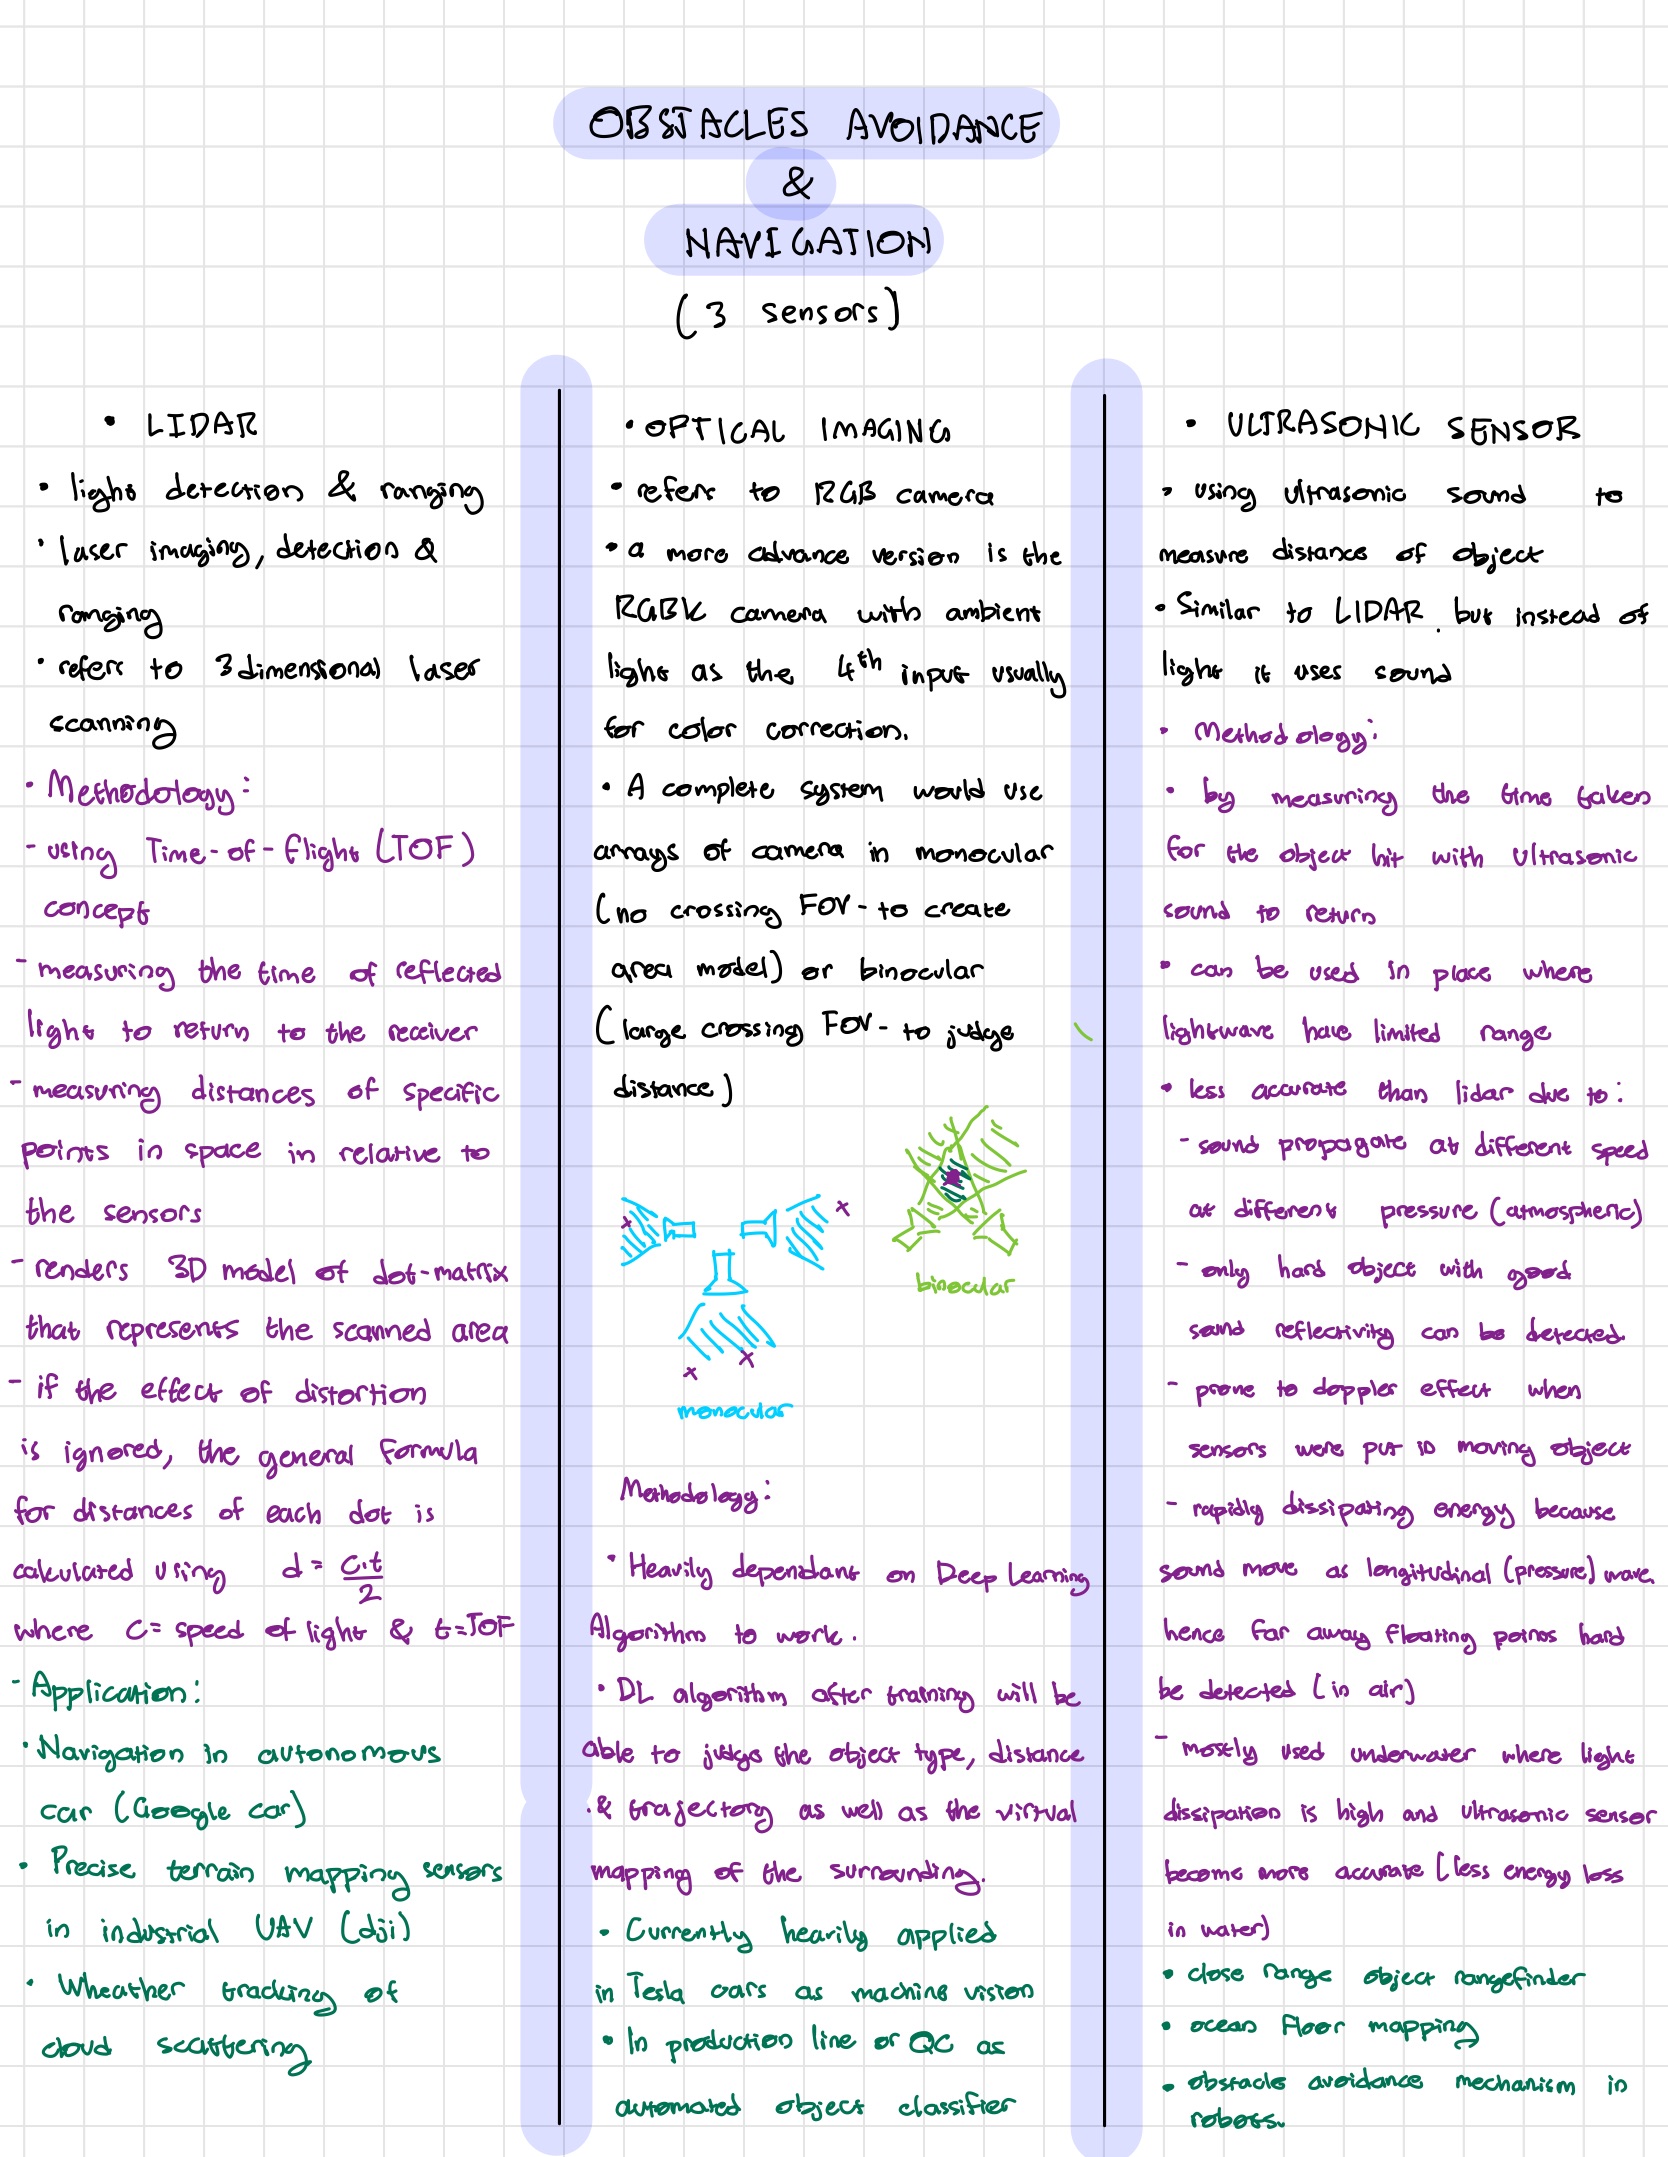 OBSTACLES AVOIDANCE
&
NAVIGATION
(3 sensors)
• LIDAR
• light detection & ranging
• laser imaging, detection &
ranging
• refers to 3 dimensional laser
scanning
• Methodology:
- using Time-of-flight (TOF)
concept
- measuring the time of reflected
light to return to the receiver
- measuring distances of specific
points in space in relative to
the sensors
- renders 3D model of dot-matrix
that represents the scanned area
- if the effect of distortion
is ignored, the general formula
for distances of each dot is
calculated using d = c.t/2
where c = speed of light & t = TOF
- Application:
• Navigation in autonomous
car (Google car)
• Precise terrain mapping sensors
in industrial UAV (dji)
• Wheather tracking of
cloud scattering
• OPTICAL IMAGING
• refers to RGB camera
• a more advance version is the
RGBK camera with ambient
light as the 4th input usually
for color correction.
• A complete system would use
arrays of camera in monocular
(no crossing FOV - to create
area model) or binocular
(large crossing FOV - to judge
distance)
binocular
monocular
Methodology:
• Heavily dependant on Deep Learning
Algorithm to work.
• DL algorithm after training will be
able to judge the object type, distance
& trajectory as well as the virtual
mapping of the surrounding.
• Currently heavily applied
in Tesla cars as machine vision
• In production line or QC as
automated object classifier
• ULTRASONIC SENSOR
• using ultrasonic sound to
measure distance of object
• Similar to LIDAR, but instead of
light it uses sound
• Methodology:
• by measuring the time taken
for the object hit with ultrasonic
sound to return
• can be used in place where
lightwave have limited range
• less accurate than lidar due to:
- sound propagate at different speed
at different pressure (atmospheric)
- only hard object with good
sound reflectivity can be detected.
- prone to doppler effect when
sensors were put in moving object
- rapidly dissipating energy because
sound move as longitudinal (pressure) wave,
hence far away floating points hard
be detected (in air)
- mostly used underwater where light
dissipation is high and ultrasonic sensor
become more accurate (less energy loss
in water)
• close range object rangefinder
• ocean floor mapping
• obstacle avoidance mechanism in
robots.